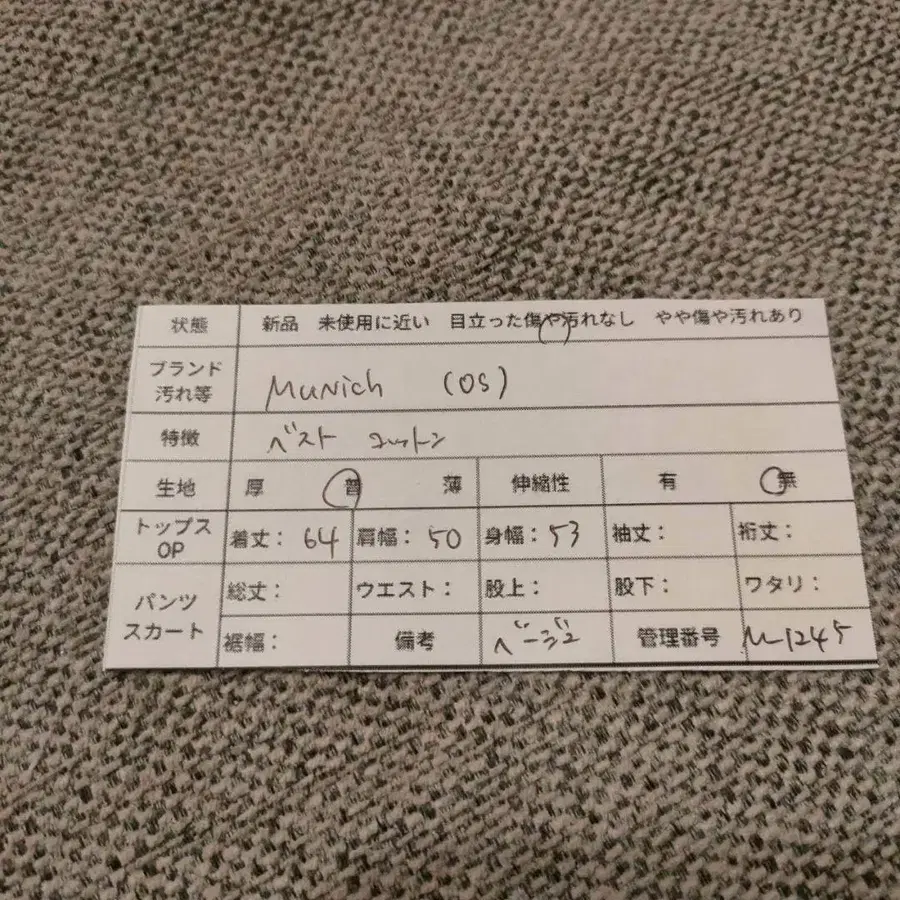 状態 新品 未使用に近い 目立った傷や汚れなし やや傷や汚れあり
ブランド
汚れ等 Munich (OS)
特徴 ベスト コットン
生地 厚 普 薄 伸縮性 有 無
トップス
OP 着丈: 64 肩幅: 50 身幅: 53 袖丈: 裄丈:
パンツ
スカート 総丈: ウエスト: 股上: 股下: ワタリ:
裾幅: 備考 ベージュ 管理番号 M-1245